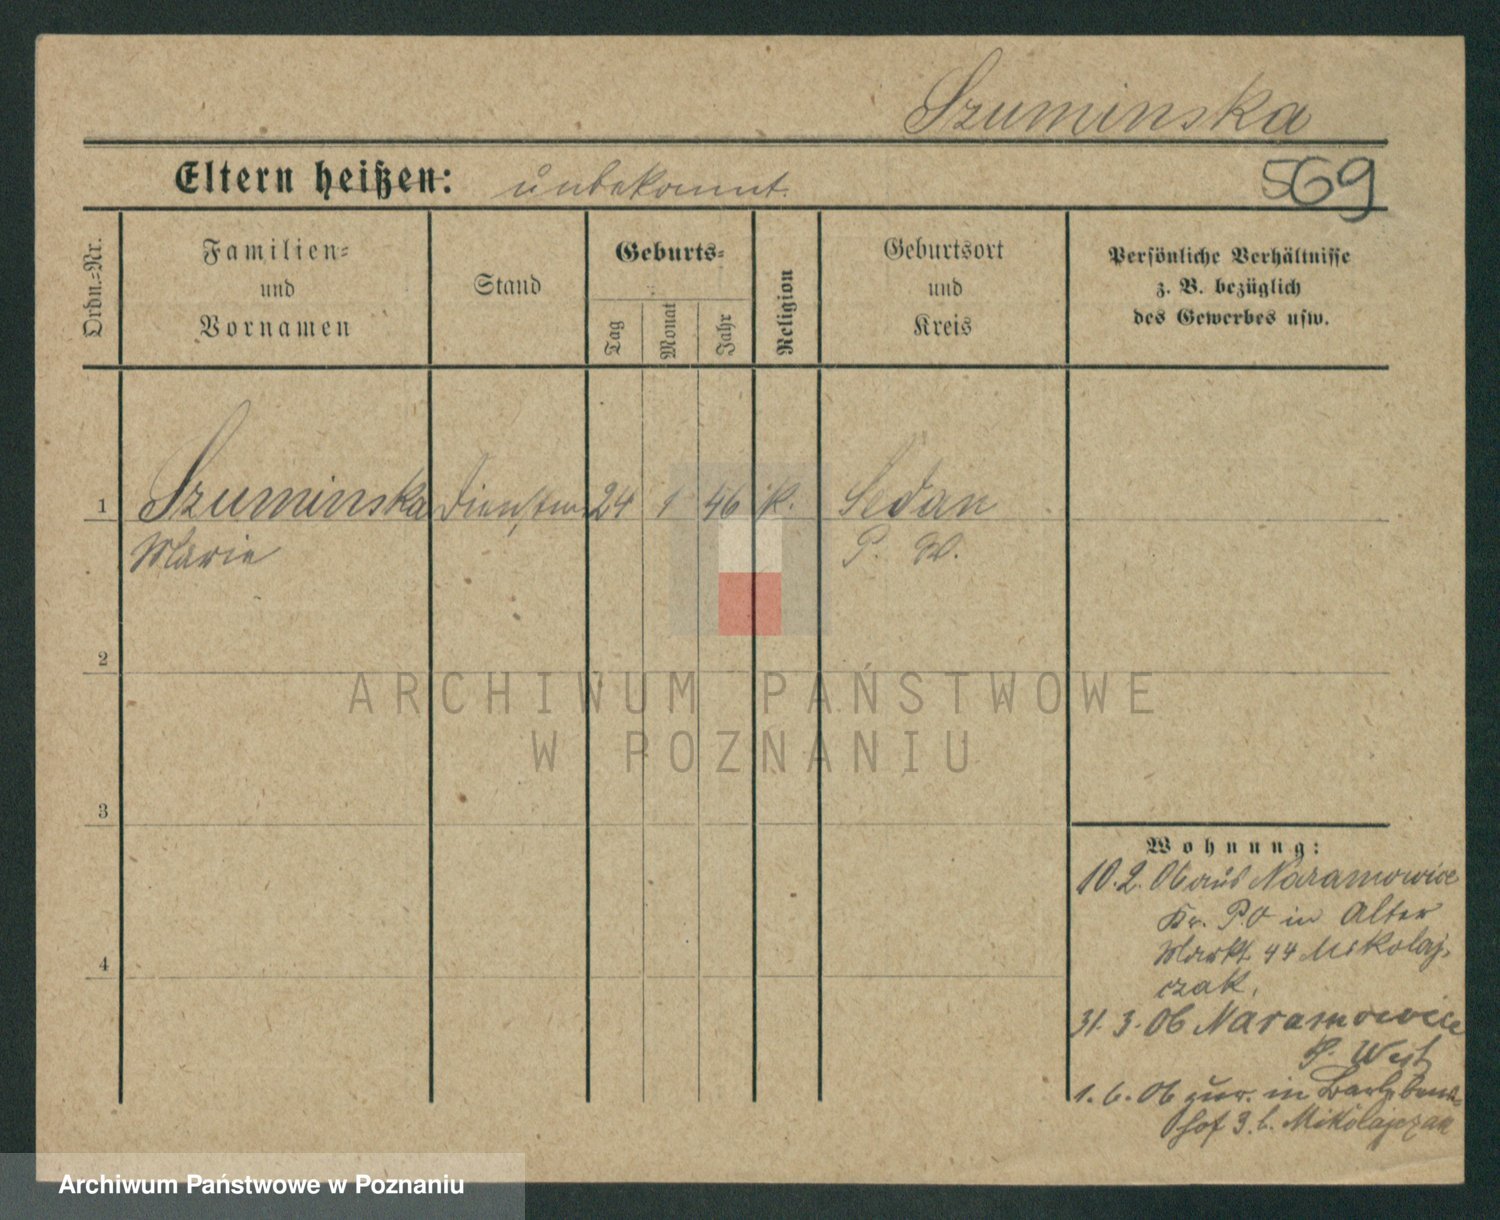 Szuminska
Eltern heißen: unbekannt.
569
Ordn.-Nr.
Familien-
und
Vornamen
Stand
Geburts-
Tag
Monat
Jahr
Religion
Geburtsort
und
Kreis
Persönliche Verhältnisse
z. B. bezüglich
des Gewerbes usw.
1 Szuminska Dienstm. 24 1 46 k. Sedan
Marie P. W.
2
3
4
Wohnung:
10.2.06 aus Naramowice
Kr. P.O in Alter
Markt 44 Mikolaj-
czak.
31.3.06 Naramowice
P. West
1.6.06 zur. in
hof 3. b. Mikolajczak
ARCHIWUM PAŃSTWOWE
W POZNANIU
Archiwum Państwowe w Poznaniu